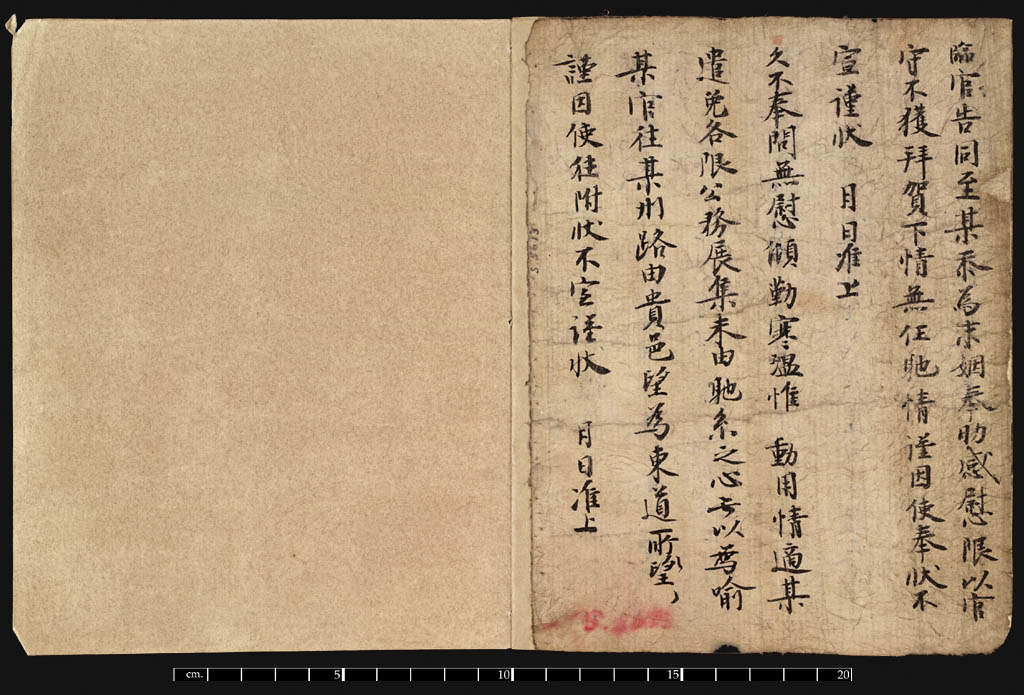 臨官告同至某忝為末姻奉助感慰限以官
守不獲拜賀下情無任馳情謹因使奉狀不
宣謹狀　月日准上
久不奉問無慰傾勤寒溫惟　動用情適某
遣免各限公務展集未由馳系之心无以為喻
某官往某州路由貴邑望為東道所望〻
謹因使往附狀不宣謹狀　月日准上
S.5613
cm. 5 10 15 20